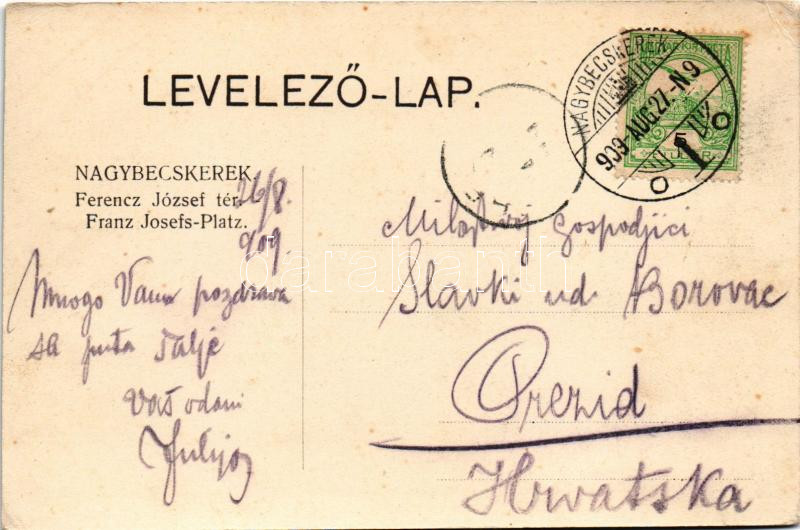 LEVELEZŐ-LAP.
NAGYBECSKEREK.
Ferencz József tér.
Franz Josefs-Platz.
26/8.
909.
Mnogo Vama pozdrava
sa puta šalje
Vaš odani
Julijo
NAGYBECSKEREK
909-AUG.27-N9
1
5
Milostivoj Gospodjici
Slavki ud. Borovac
Prezid
Hrvatska
darabanth